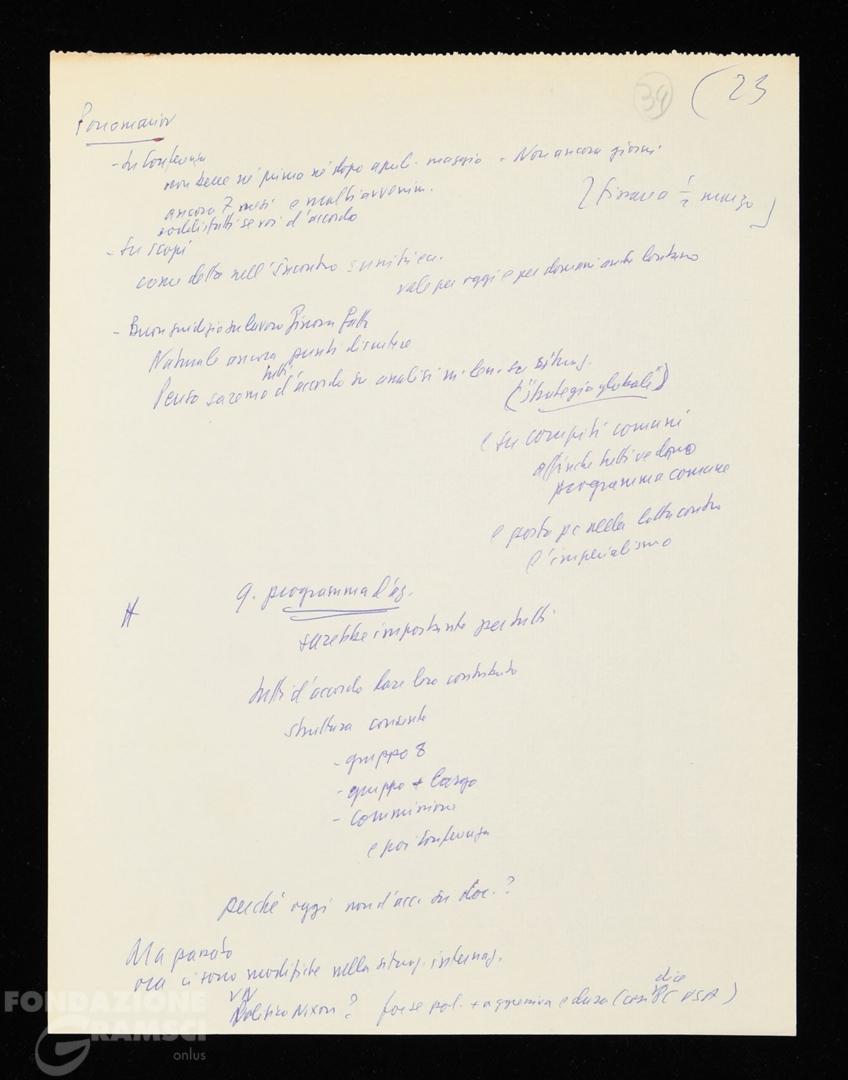 39
(23
Ponomariov
- Su Conferenza
non bene né prima né dopo apr. - maggio - Non ancora giorni
ancora 7 mesi e molti avvenim.
[ Finora 1/2 marzo ]
soddisfatti se voi d'accordo
- Su scopi
come detto nell'incontro
vale per oggi e per domani anche lontano
- Buon giudizio su lavoro finora fatto
Naturale ancora punti discutere
Penso saremo tutti d'accordo su analisi su situaz.
("strategia globale")
e su compiti comuni
affinché tutti vedano
programma comune
e posto pc nella lotta contro
l'imperialismo
q. programma d'az.
sarebbe importante per tutti
tutti d'accordo dare loro contributo
struttura consente
- gruppo 8
- gruppo + largo
- commissione
e poi Conferenza
perché oggi non d'acc. su doc.?
ora ci sono modifiche nella situaz. internaz.
VN
Politica Nixon? forse pol. + aggressiva e dura (così dice PC USA)
FONDAZIONE
GRAMSCI
onlus